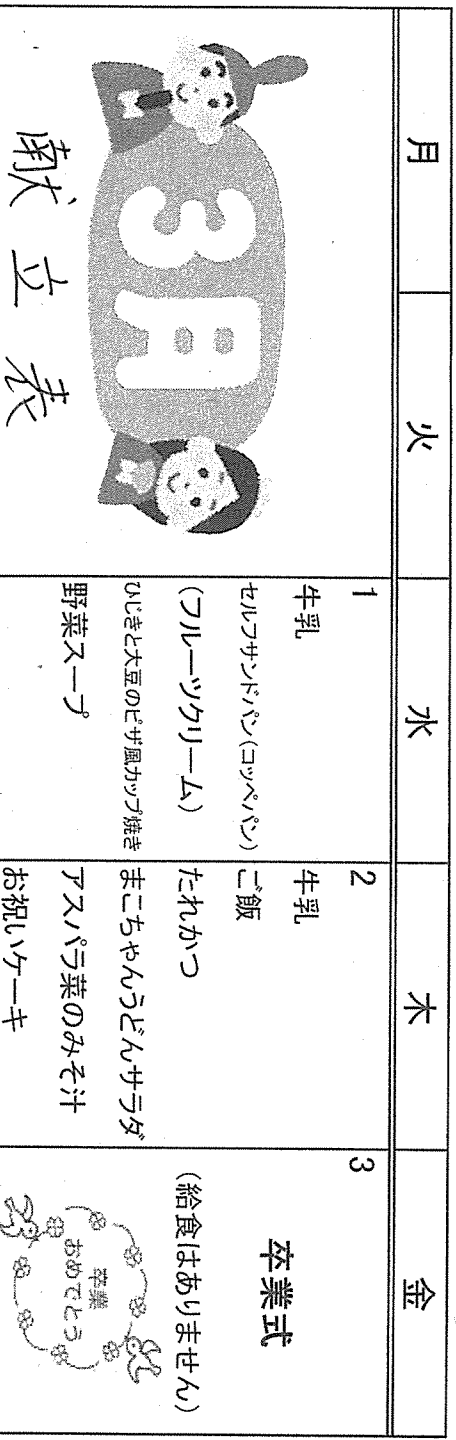 月 火 水 木 金
3月
献立表
1
牛乳
セルフサンドパン(コッペパン)
(フルーツクリーム)
ひじきと大豆のピザ風カップ焼き
野菜スープ
2
牛乳
ご飯
たれかつ
まこちゃんうどんサラダ
アスパラ菜のみそ汁
お祝いケーキ
3
卒業式
(給食はありません)
卒業
おめでとう